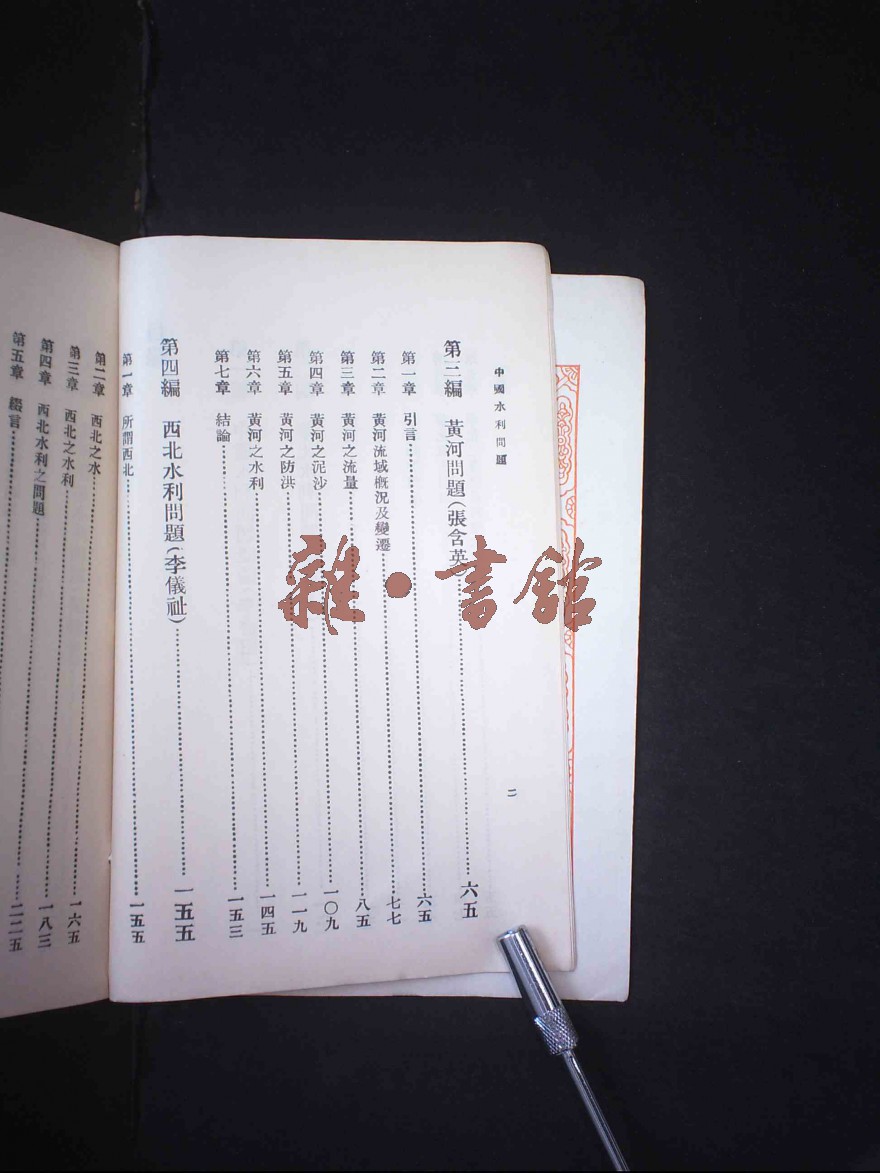 中國水利問題
二
第三編 黃河問題(張含英)……六五
第一章 引言……六五
第二章 黃河流域概況及變遷……七七
第三章 黃河之流量……八五
第四章 黃河之泥沙……一〇九
第五章 黃河之防洪……一一九
第六章 黃河之水利……一四五
第七章 結論……一五三
第四編 西北水利問題(李儀祉)……一五五
第一章 所謂西北……一五五
第二章 西北之水……一六五
第三章 西北之水利……一八三
第四章 西北水利之問題……二二五
第五章 綴言
雜·書館